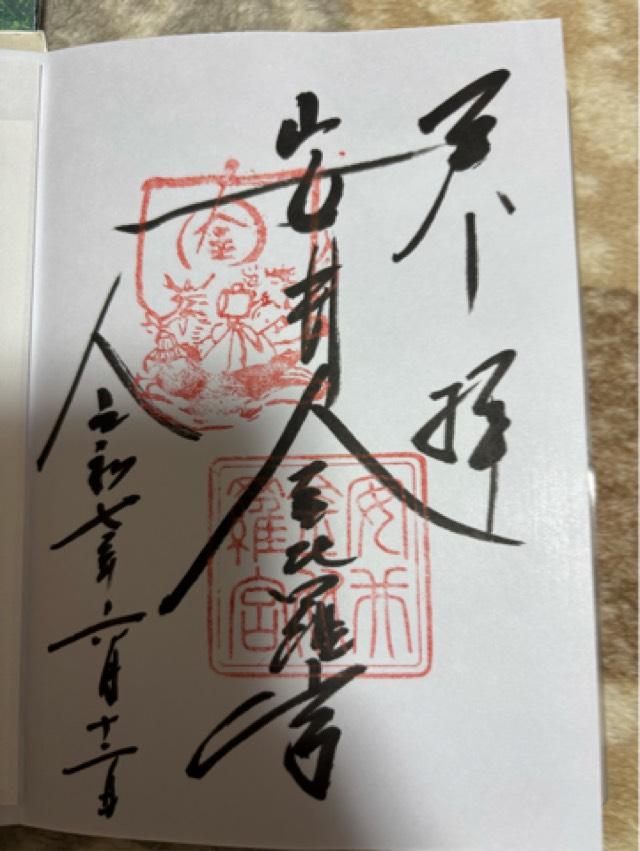 奉拝
安井金比羅宮
令和七年六月十二日
金
安井
金比
羅宮